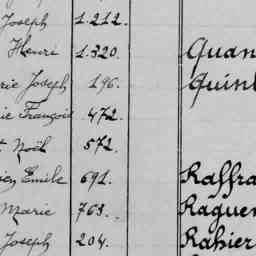 Joseph 1.212.
Henri 1.320. Quan
rie Joseph 196. Quint
ie François 472.
t Noël 572.
ien Emile 691. Raffra
Marie 763. Raguen
Joseph 204. Rahier